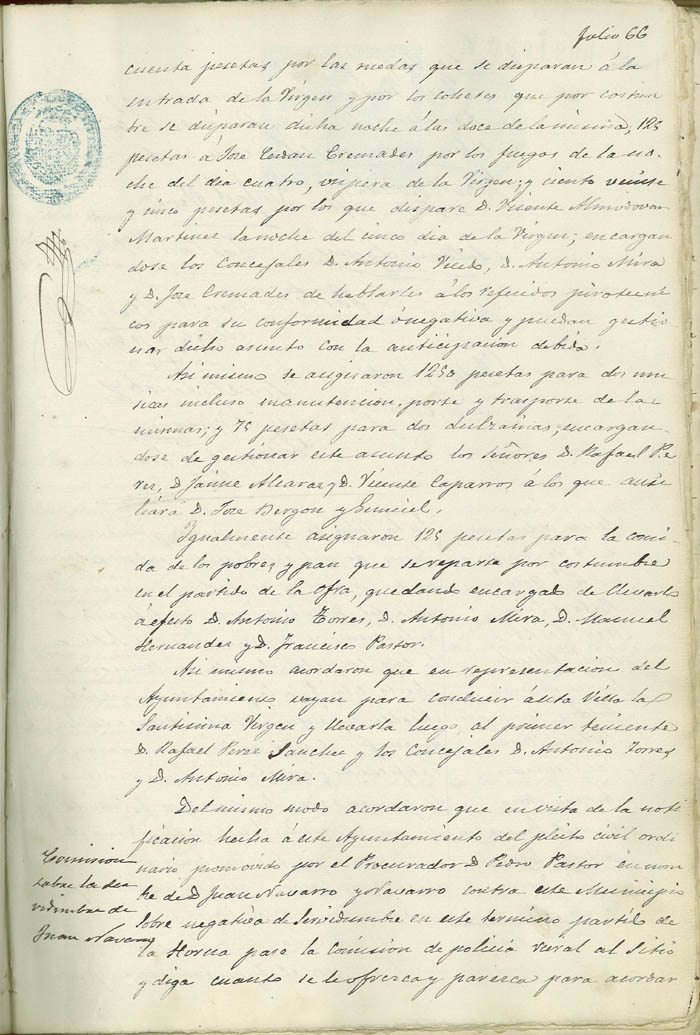 Julio 66
cuenta pesetas por las ruedas que se disparan á la
entrada de la Virgen y por los cohetes que por costum
bre se disparan dicha noche á las doce de la misma, 125
pesetas á Jose Cerdan Cremades por los fuegos de la no
che del dia cuatro, vispera de la Virgen; y ciento veinte
y cinco pesetas por los que dispare D. Vicente Almodovar
Martinez la noche del cinco dia de la Virgen; encargan
dose los Concejales D. Antonio D. Antonio Mira
y D. Jose Cremades de hablarles á los referidos pirotecni
cos para su conformidad ó negativa y puedan gestio
nar dicho asunto con la anticipacion debida.
Asi mismo se asignaron 1250 pesetas para dos mu
sicas incluso manutencion, porte y trasporte de las
mismas; y 75 pesetas para dos dulzainas, encargan
dose de gestionar este asunto los señores D. Rafael Pe
rez, D Jaime Alcaraz y D. Vicente Caparros á los que ausi
liará D. Jose Bergon y
Igualmente asignaron 125 pesetas para la comi
da de los pobres y pan que se reparte por costumbre
en el partido de la Ofra, quedando encargados de llevarlo
á efecto D. Antonio Torres, D. Antonio Mira, D. Manuel
Hernandez y D. Francisco Pastor.
Asi mismo acordaron que en representacion del
Ayuntamiento vayan para conducir á esta Villa la
Santisima Virgen y llevarla luego, al primer teniente
D. Rafael Perez Sanchez y los Concejales D. Antonio Torres
y D. Antonio Mira.
Del mismo modo acordaron que en vista de la noti
ficacion hecha á este Ayuntamiento del pleito civil ordi
nario promovido por el Procurador D Pedro Pastor en nom
bre de D Juan Navarro y Navarro contra este Municipio
sobre negativa de servidumbre en este termino partido de
la Horna pase la Comision de policía rural al sitio
y diga cuanto se le ofrezca y parezca para acordar
Comision
sobre la ser
vidumbre de
Juan Navarro